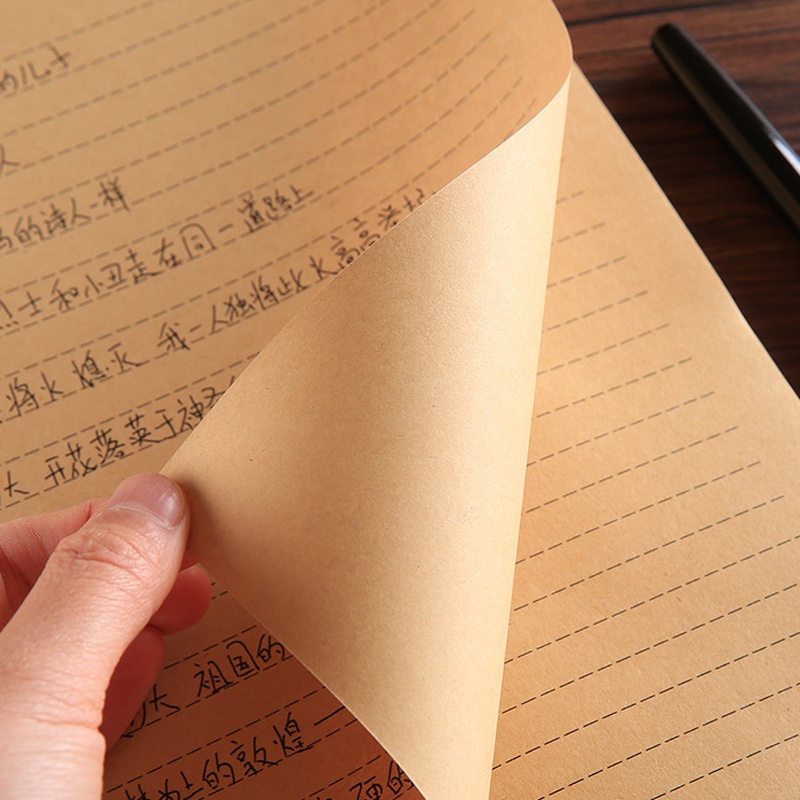 的儿子
人
的诗人一样
烈士和小丑走在同一道路上
将火熄灭 我一人独将此火高高举起
大 开花落英于神圣
祖国的
的敦煌一
的